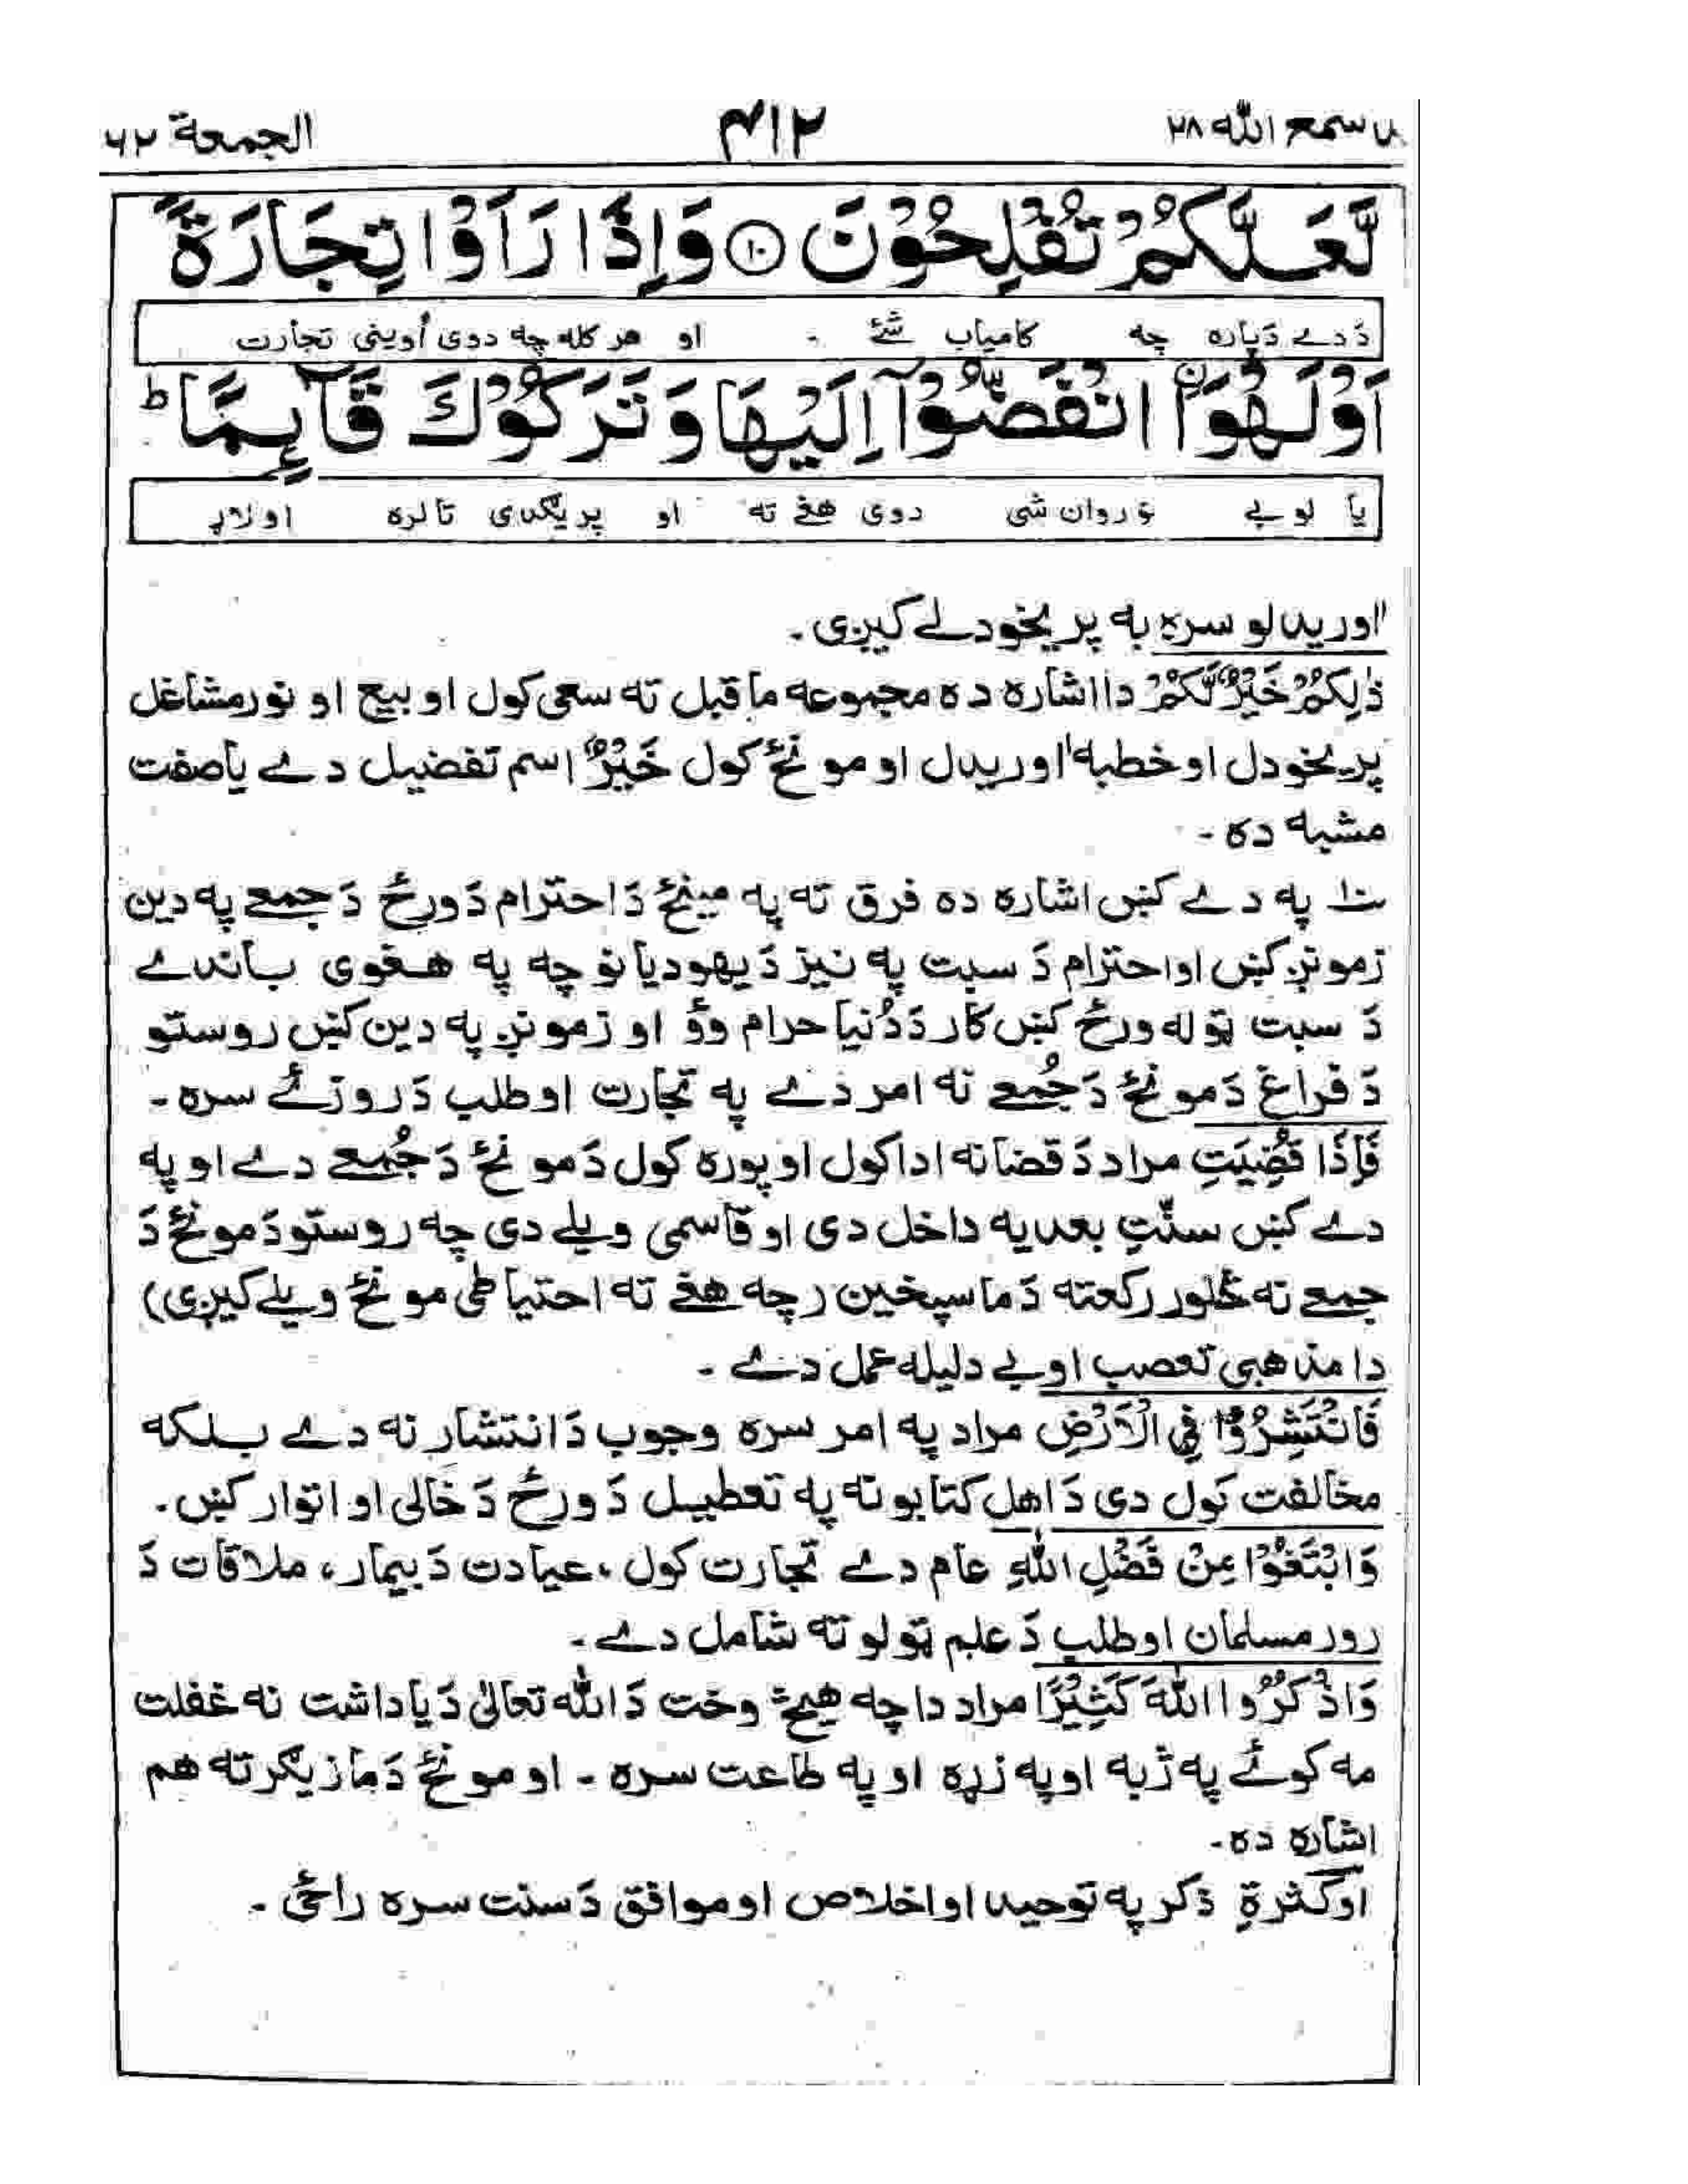 قد سمع الله ٢٨
٤١٢
الجمعة ٦٢
لَّعَلَّكُمْ تُفْلِحُوْنَ ۝١٠ وَاِذَا رَاَوْا تِجَارَةً
دَ دے دَپاره چه کامیاب شئے - او هر کله چه دوی اُوینی تجارت
اَوْ لَهْوَاۨ انْفَضُّوْٓا اِلَيْهَا وَ تَرَكُوْكَ قَآىِٕمًا ؕ
یا لوبے نو روان شی دوی هغے ته او پریګدی تا لره اولاړ
اوریدلو سره به پریخودلے کیږی ۔
ذٰلِكُمْ خَيْرٌ لَّكُمْ دا اشاره ده مجموعه ماقبل ته سعی کول او بیع او نور مشاغل
پریخودل او خطبه اوریدل او مونځ کول خَيْرٌ اسم تفضیل دے یا صفت
مشبه ده ۔
۱۰ په دے کښ اشاره ده فرق ته په مینځ دَ احترام دَ ورځ دَ جمعے په دین
زمونږ کښ او احترام دَ سبت په نیز دَ یهودیانو چه په هغوی باندے
دَ سبت ټوله ورځ کښ کار دَ دُنیا حرام وؤ او زمونږ په دین کښ روستو
دَ فراغ دَ مونځ دَ جُمعے نه امر دے په تجارت او طلب دَ روزئے سره ۔
فَاِذَا قُضِيَتِ مراد دَ قضا نه ادا کول او پوره کول دَ مونځ دَ جُمعے دے او په
دے کښ سنّتِ بعدیه داخل دی او قاسمی ویلے دی چه روستو دَ مونځ دَ
جمعے نه څلور رکعته دَ ماسپخین (چه هغے ته احتیاطی مونځ ویلے کیږی)
دا مذهبی تعصب او بے دلیله عمل دے ۔
فَانْتَشِرُوْا فِي الْاَرْضِ مراد په امر سره وجوب دَ انتشار نه دے بلکه
مخالفت کول دی دَ اهل کتابو نه په تعطیل دَ ورځ دَ خالی او اتوار کښ ۔
وَابْتَغُوْا مِنْ فَضْلِ اللهِ عام دے تجارت کول، عیادت دَ بیمار، ملاقات دَ
رور مسلمان او طلب دَ علم ټولو ته شامل دے ۔
وَاذْكُرُوا اللهَ كَثِيْرًا مراد دا چه هیڅ وخت دَ الله تعالیٰ دَ یاداشت نه غفلت
مه کوئے په ژبه او په زړه او په طاعت سره ۔ او مونځ دَ مازیګر ته هم
اشاره ده ۔
او کثرةِ ذکر په توحید او اخلاص او موافق دَ سنت سره راځی ۔